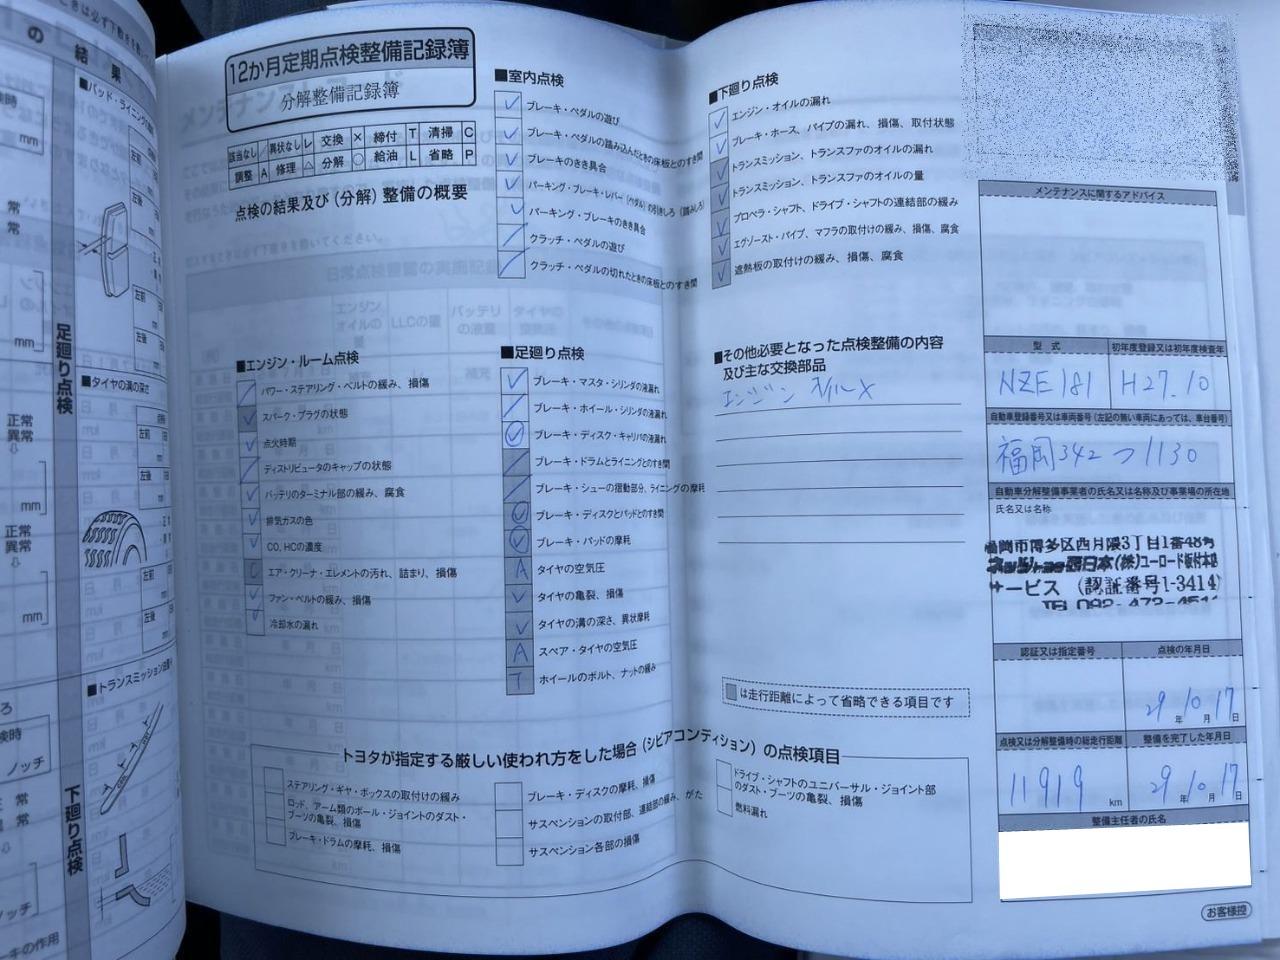 の結果
■パッド・ライニングの
mm
常
常
mm
正常
異常
mm
正常
異常
mm
ノッチ
足廻り点検
■タイヤの溝の深さ
■トランスミッション
下廻り点検
12か月定期点検整備記録簿
分解整備記録簿
該当なし ／ 異状なし レ 交換 × 締付 T 清掃 C
調整 A 修理 △ 分解 ○ 給油 L 省略 P
点検の結果及び(分解)整備の概要
■エンジン・ルーム点検
パワー・ステアリング・ベルトの緩み、損傷
スパーク・プラグの状態
点火時期
ディストリビュータのキャップの状態
バッテリのターミナル部の緩み、腐食
排気ガスの色
CO、HCの濃度
エア・クリーナ・エレメントの汚れ、詰まり、損傷
ファン・ベルトの緩み、損傷
冷却水の漏れ
■室内点検
ブレーキ・ペダルの遊び
ブレーキ・ペダルの踏み込んだときの床板とのすき間
ブレーキのきき具合
パーキング・ブレーキ・レバー(ペダル)の引きしろ(踏みしろ)
パーキング・ブレーキのきき具合
クラッチ・ペダルの遊び
クラッチ・ペダルの切れたときの床板とのすき間
■足廻り点検
ブレーキ・マスタ・シリンダの液漏れ
ブレーキ・ホイール・シリンダの液漏れ
ブレーキ・ディスク・キャリパの液漏れ
ブレーキ・ドラムとライニングとのすき間
ブレーキ・シューの摺動部分、ライニングの摩耗
ブレーキ・ディスクとパッドとのすき間
ブレーキ・パッドの摩耗
A タイヤの空気圧
タイヤの亀裂、損傷
タイヤの溝の深さ、異状摩耗
A スペア・タイヤの空気圧
T ホイールのボルト、ナットの緩み
■下廻り点検
エンジン・オイルの漏れ
ブレーキ・ホース、パイプの漏れ、損傷、取付状態
トランスミッション、トランスファのオイルの漏れ
トランスミッション、トランスファのオイルの量
プロペラ・シャフト、ドライブ・シャフトの連結部の緩み
エグゾースト・パイプ、マフラの取付けの緩み、損傷、腐食
遮熱板の取付けの緩み、損傷、腐食
■その他必要となった点検整備の内容
及び主な交換部品
エンジン オイル×
は走行距離によって省略できる項目です
トヨタが指定する厳しい使われ方をした場合(シビアコンディション)の点検項目
ステアリング・ギヤ・ボックスの取付けの緩み
ロッド、アーム類のボール・ジョイントのダスト・
ブーツの亀裂、損傷
ブレーキ・ドラムの摩耗、損傷
ブレーキ・ディスクの摩耗、損傷
サスペンションの取付部、連結部の緩み、がた
サスペンション各部の損傷
ドライブ・シャフトのユニバーサル・ジョイント部
のダスト・ブーツの亀裂、損傷
燃料漏れ
メンテナンスに関するアドバイス
型式 初年度登録又は初年度検査年
NZE181 H27.10
自動車登録番号又は車両番号(左記の無い車両にあっては、車台番号)
福岡342つ1130
自動車分解整備事業者の氏名又は名称及び事業場の所在地
氏名又は名称
福岡市博多区西月隈3丁目1番48号
ネッツトヨタ西日本(株)ユーロード板付本店
サービス (認証番号1-3414)
TEL 092-472-4511
認証又は指定番号 点検の年月日
29年10月17日
点検又は分解整備時の総走行距離 整備を完了した年月日
11919km 29年10月17日
整備主任者の氏名
お客様控